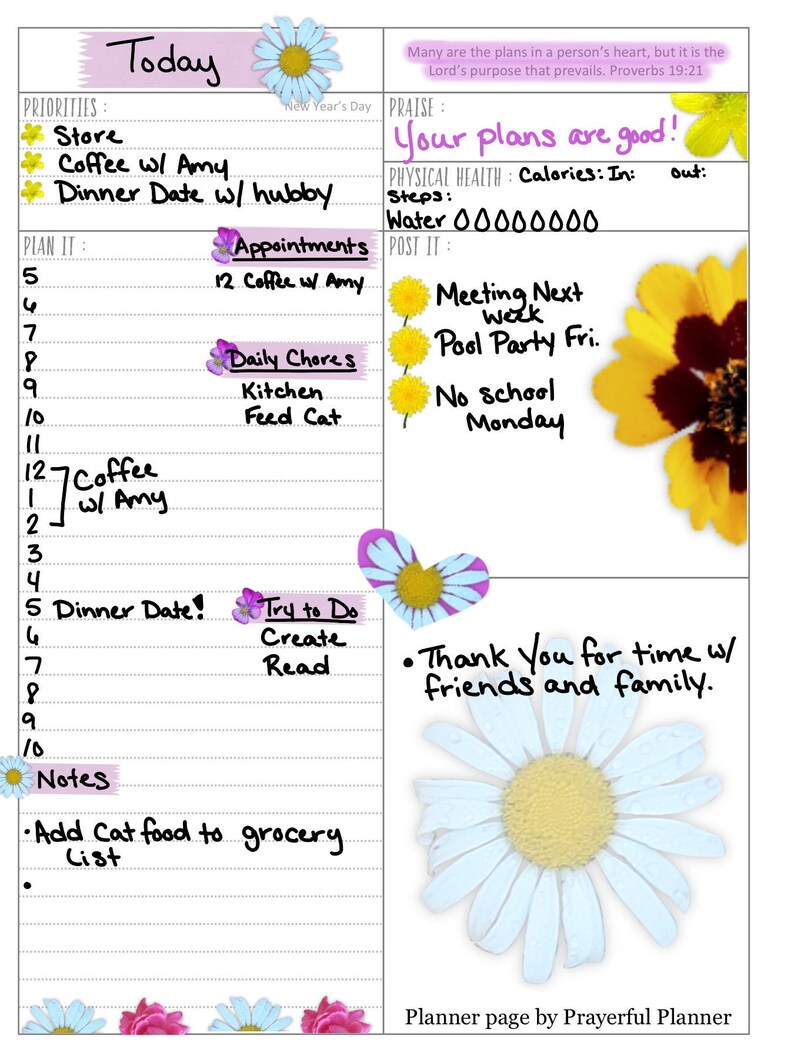 Today
New Year's Day
Many are the plans in a person's heart, but it is the
Lord's purpose that prevails. Proverbs 19:21
PRIORITIES :
Store
Coffee w/ Amy
Dinner Date w/ hubby
PRAISE :
Your plans are good!
PHYSICAL HEALTH : Calories: In: out:
Steps:
Water
PLAN IT :
Appointments
12 Coffee w/ Amy
5
6
7
8
9
10
11
12
1
2
3
4
5 Dinner Date!
6
7
8
9
10
Coffee
w/ Amy
Daily Chores
Kitchen
Feed Cat
Try to Do
Create
Read
Notes
• Add Cat food to grocery
List
•
POST IT :
Meeting Next
Week
Pool Party Fri.
No school
Monday
• Thank You for time w/
friends and family.
Planner page by Prayerful Planner